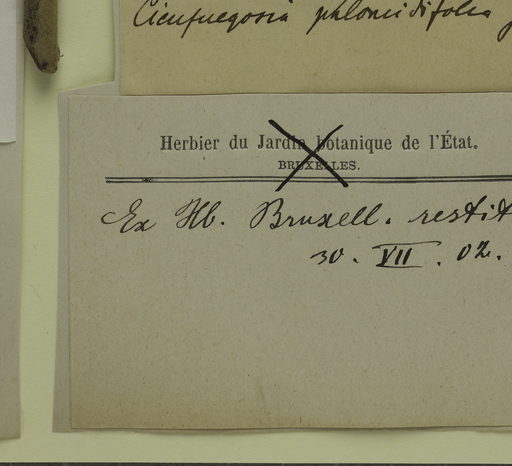 Cienfuegosia phlomidifolia
Herbier du Jardin botanique de l'État.
BRUXELLES.
Ex Hb. Bruxell. restit
30. VII. 02.